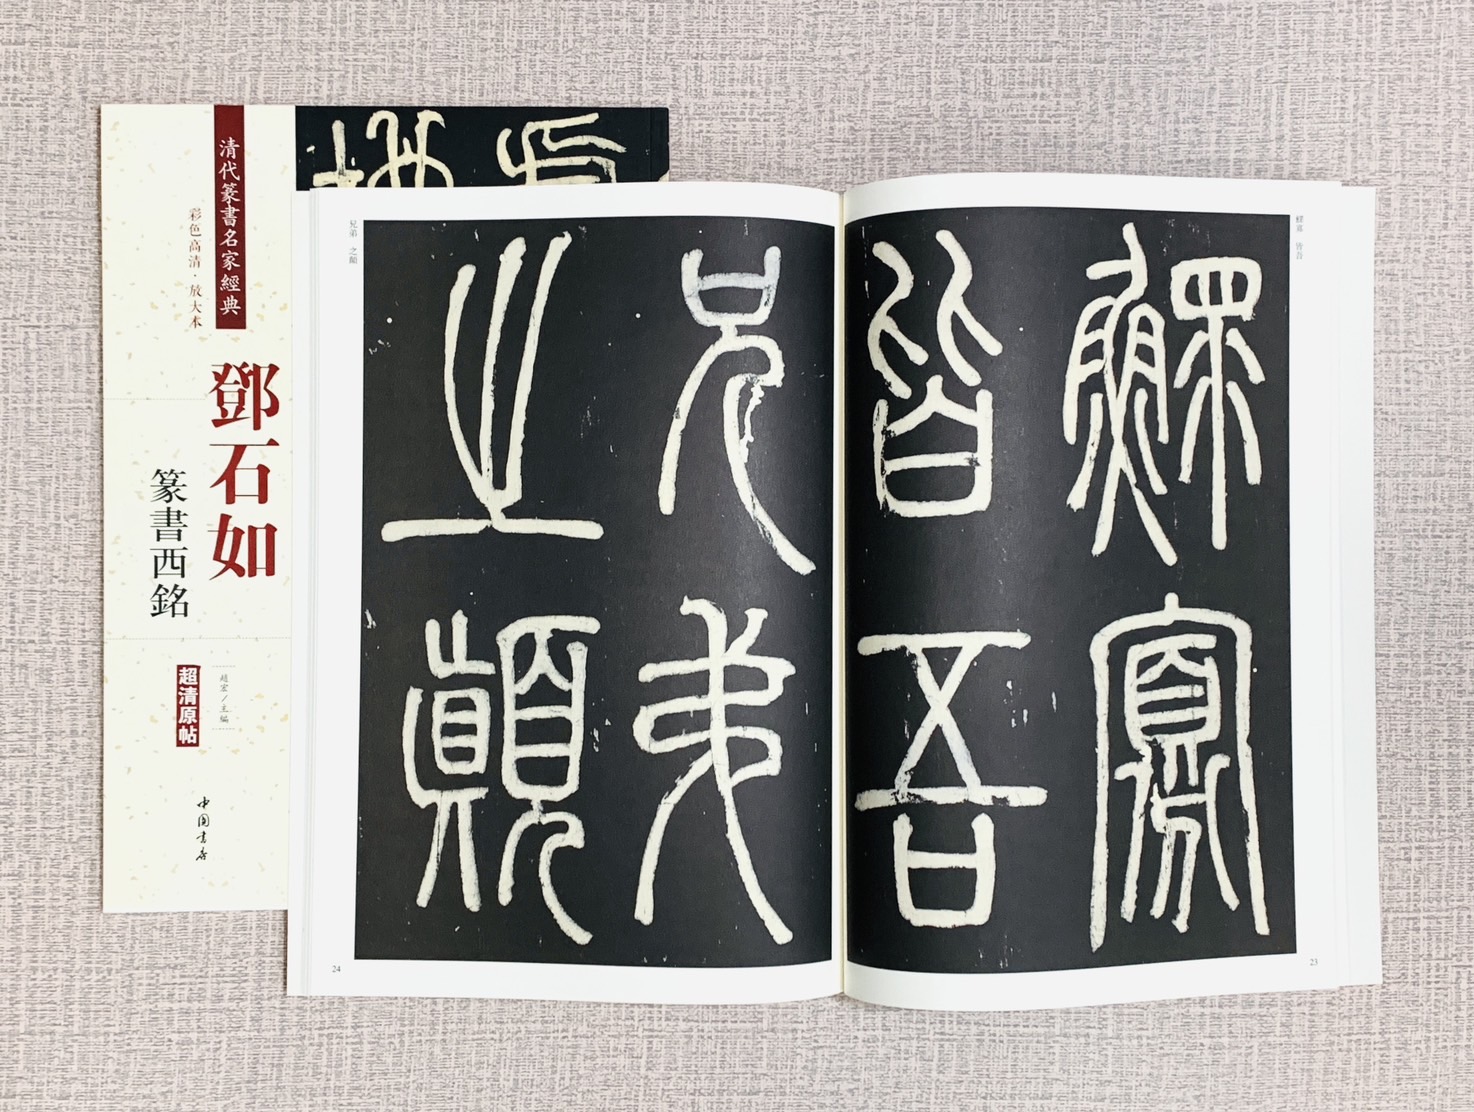 清代篆書名家經典
彩色高清·放大本
鄧石如
篆書西銘
趙宏/主編
超清原帖
中国书店
鰥寡 皆吾
鰥寡
皆吾
23
兄弟
之顛
兄弟 之顛
24